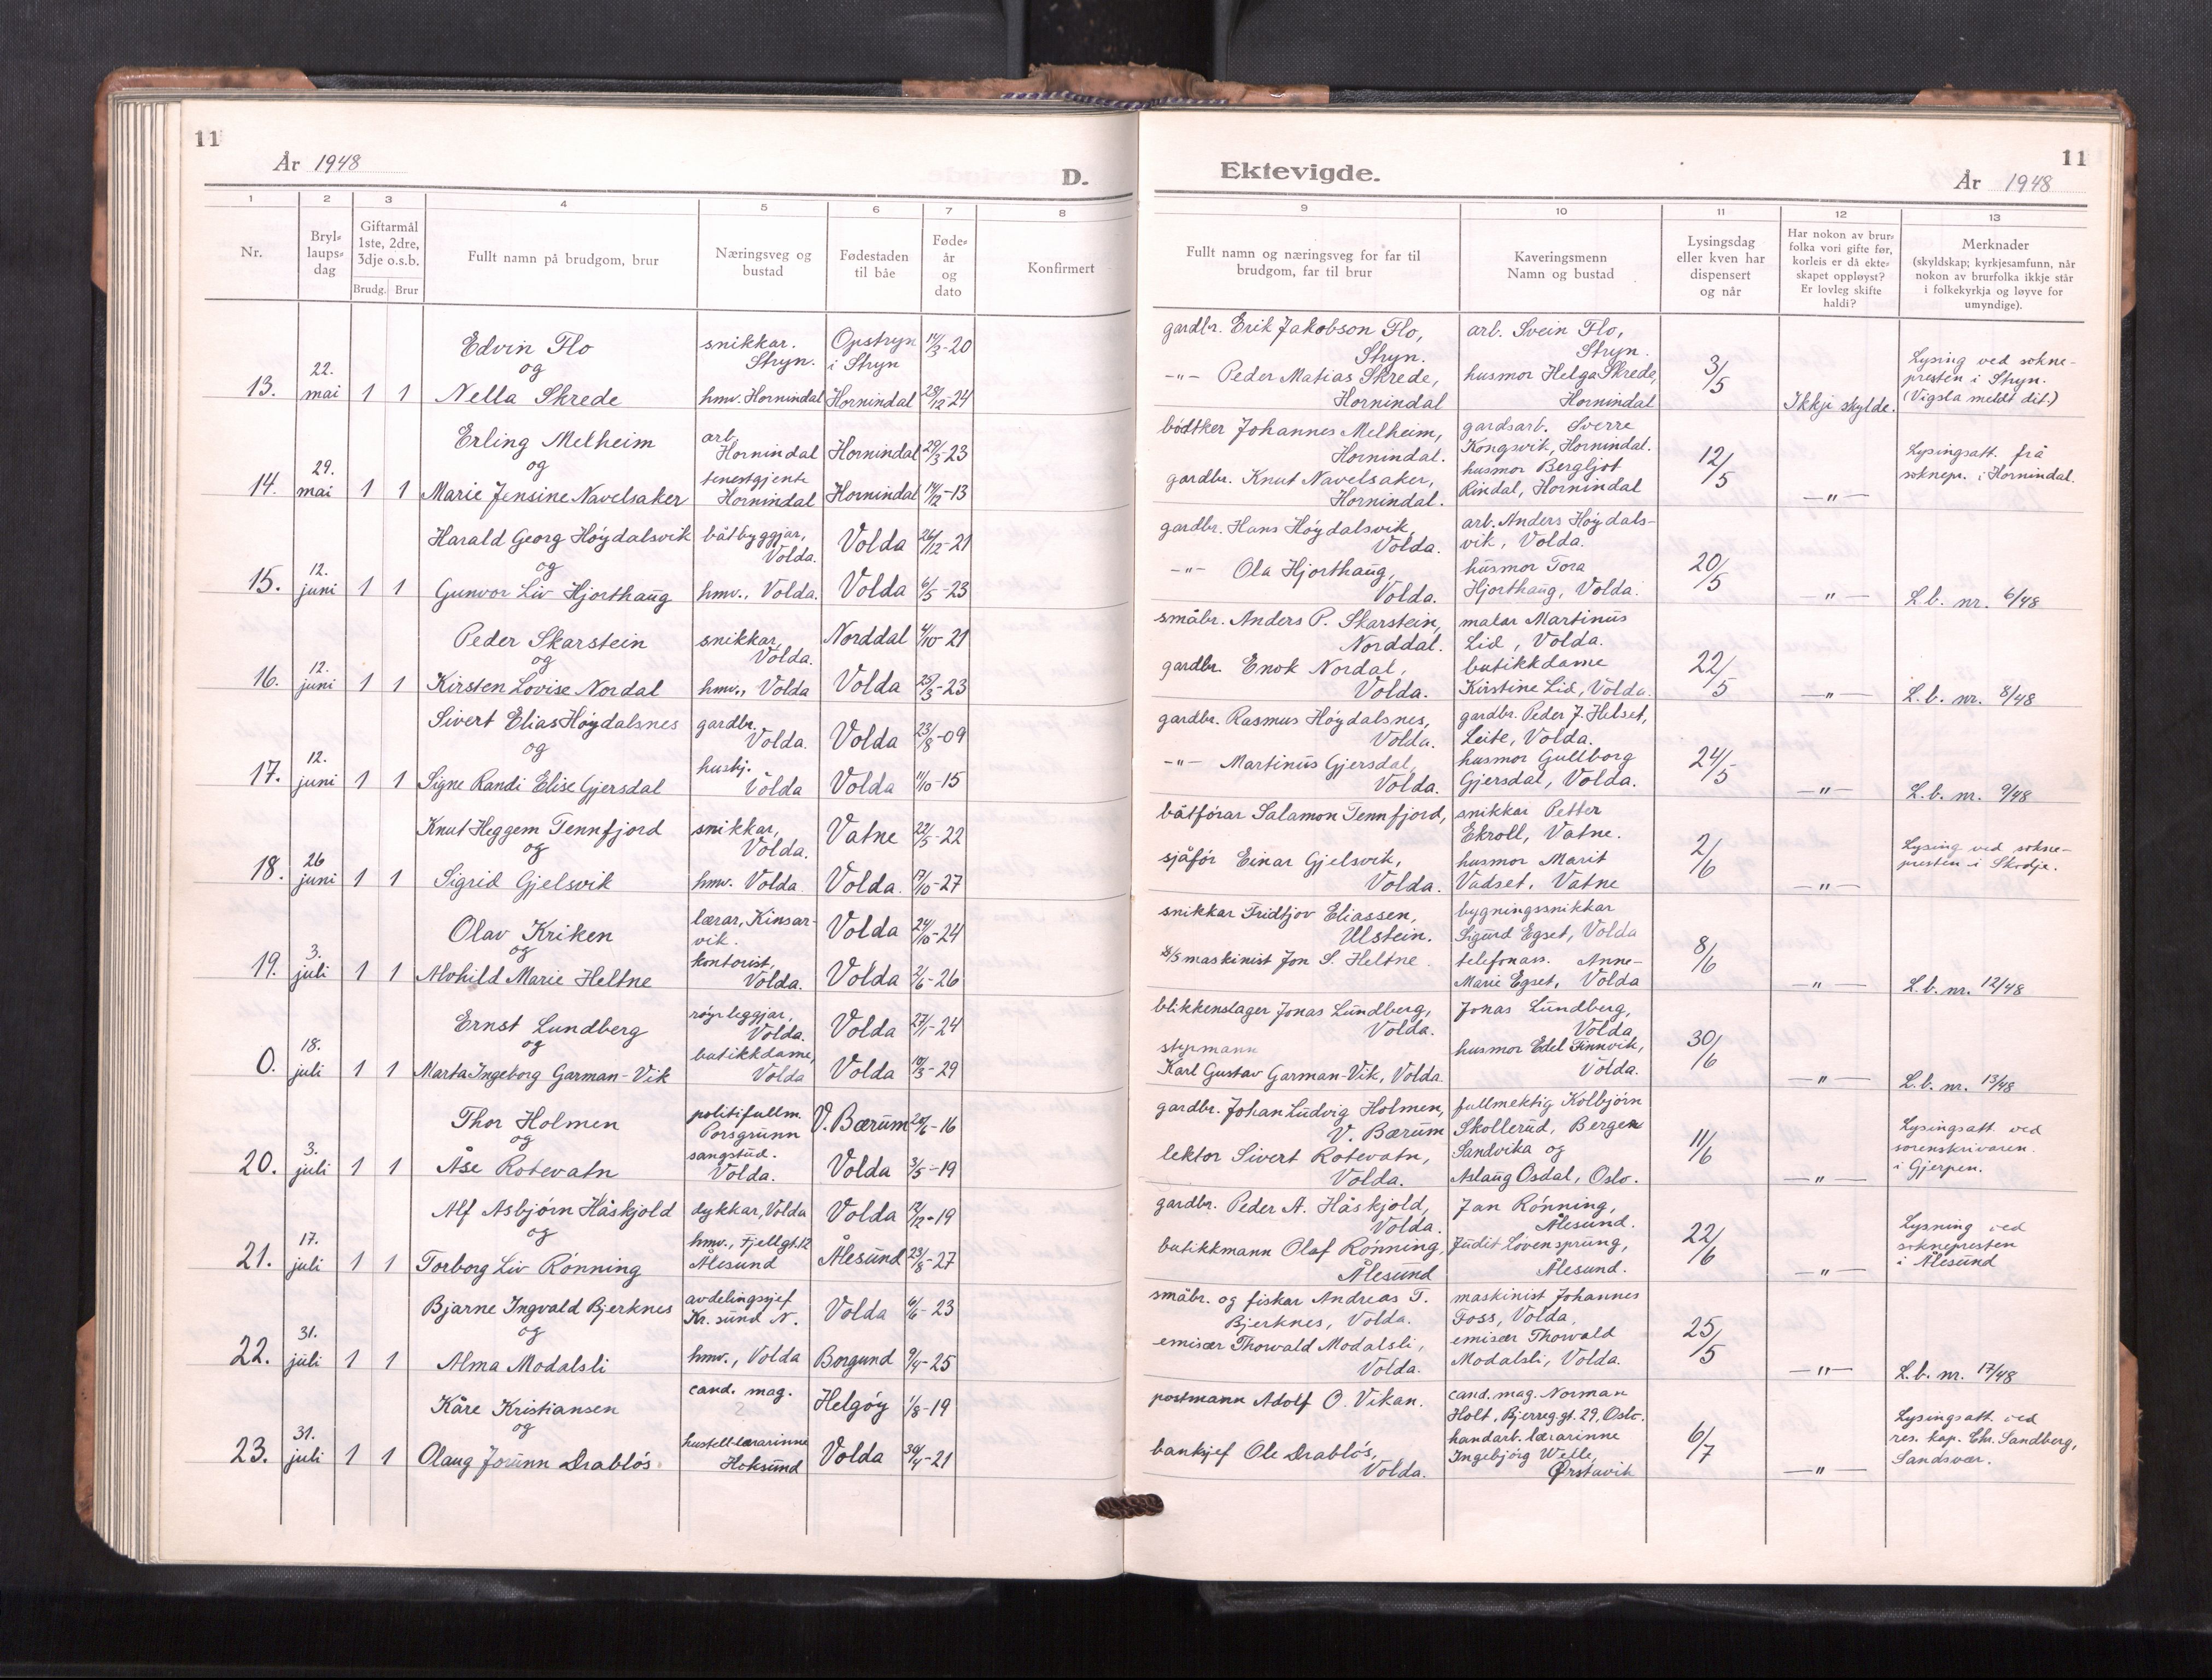 11
År 1948
D.
1 2 3 4 5 6 7 8
Nr.
Bryl-
laups-
dag
Giftarmål
1ste, 2dre,
3dje o.s.b.
Brudg. Brur
Fullt namn på brudgom, brur
Næringsveg og
bustad
Fødestaden
til båe
Føde-
år
og
dato
Konfirmert
Edvin Flo snikkar. Opstryn 14/3-20
og Stryn. i Stryn
22.
13. mai 1 1 Nella Skrede hmv. Hornindal Hornindal 28/12-24
Erling Melheim arb. Hornindal Hornindal 29/3-23
og
29.
14. mai 1 1 Marie Jensine Navelsaker tenestgjente Hornindal Hornindal 14/12-13
Harald Georg Höydalsvik båtbyggjar, Volda. Volda 26/12-21
og
12.
15. juni 1 1 Gunvor Liv Hjorthaug hmv., Volda. Volda 6/5-23
Peder Skarstein snikkar, Volda. Norddal 4/10-21
og
12.
16. juni 1 1 Kirsten Lovise Nordal hmv., Volda Volda 25/3-23
Sivert Elias Höydalsnes gardbr. Volda. Volda 23/8-09
og
12.
17. juni 1 1 Signe Randi Elise Gjersdal hushj. Volda Volda 11/10-15
Knut Heggem Tennfjord snikkar, Volda. Vatne 22/5-22
og
26
18. juni 1 1 Sigrid Gjelsvik hmv. Volda Volda. 17/10-27
Olav Kriken lærar, Kinsar-
vik. Volda 24/10-24
og
3.
19. juli 1 1 Alvhild Marie Heltne kontorist, Volda. Volda 2/6-26
Ernst Lundberg röyrleggjar, Volda. Volda 27/1-24
og
18.
0. juli 1 1 Marta Ingeborg Garman-Vik butikkdame, Volda Volda 10/3-29
Thor Holmen politifullm. Porsgrunn V. Bærum 20/6-16
og
3.
20. juli 1 1 Åse Rotevatn sangstud. Volda. Volda 3/5-19
Alf Asbjörn Håskjold dykkar, Volda Volda 12/12-19
og
17.
21. juli 1 1 Torborg Liv Rönning hmv., Fjellgt. 12 Ålesund Ålesund 23/8-27
Bjarne Ingvald Bjerknes avdelingssjef Kr. sund N. Volda 6/6-23
og
31.
22. juli 1 1 Alma Modalsli hmv., Volda Borgund 9/4-25
Kåre Kristiansen cand. mag. Helgöy 1/8-19
og ?
31.
23. juli 1 1 Olaug Jorunn Drablös. hustell-lærarinne Hoksund Volda 30/4-21
Ektevigde.
11
År 1948
9 10 11 12 13
Fullt namn og næringsveg for far til
brudgom, far til brur
Kaveringsmenn
Namn og bustad
Lysingsdag
eller kven har
dispensert
og når
Har nokon av brur-
folka vori gifte før,
korleis er då ekte-
skapet oppløyst?
Er lovleg skifte
haldi?
Merknader
(skyldskap; kyrkjesamfunn, når
nokon av brurfolka ikkje står
i folkekyrkja og løyve for
umyndige).
gardbr. Erik Jakobson Flo, arb. Svein Flo,
Stryn. Stryn. Lysing ved sokne-
-"- Peder Matias Skrede, husmor Helga Skrede, 3/5 presten i Stryn.
Hornindal Hornindal Ikkje skylde. (Vigsla meldt dit.)
bödtker Johannes Melheim, gardsarb. Sverre
Hornindal. Kongsvik, Hornindal. 12/5 Lysingsatt. frå
gardbr. Knut Navelsaker, husmor Bergljot soknepr. i Hornindal.
Hornindal. Rindal, Hornindal -"-
gardbr. Hans Höydalsvik, arb. Anders Höydals-
Volda. vik, Volda.
-"- Ola Hjorthaug, husmor Tora 20/5
Volda. Hjorthaug, Volda. -"- L.b. nr. 6/48
småbr. Anders P. Skarstein, malar Martinus
Norddal. Lid, Volda.
gardbr. Enok Nordal, butikkdame 22/5
Volda. Kirstine Lid, Volda. -"- L.b. nr. 8/48
gardbr. Rasmus Höydalsnes, gardbr. Peder J. Helset,
Volda. Leite, Volda.
-"- Martinus Gjersdal, husmor Gullborg 24/5
Volda. Gjersdal, Volda. -"- L.b. nr. 9/48
båtförar Salamon Tennfjord, snikkar Petter
Ekroll, Vatne. Lysing ved sokne-
sjåför Einar Gjelsvik, husmor Marit 2/6 presten i Skodje.
Volda. Vadset, Vatne -"-
snikkar Fridtjov Eliassen, bygningssnikkar
Ulstein. Sigurd Egset, Volda
D/S maskinist Jon S. Heltne. telefonass. Anne- 8/6
Marie Egset, Volda -"- L.b. nr. 12/48
blikkenslager Jonas Lundberg, Jonas Lundberg,
Volda. Volda
styrmann husmor Edel Finnvik, 30/6
Karl Gustav Garman-Vik, Volda. Volda. -"- L.b. nr. 13/48
gardbr. Johan Ludvig Holmen, fullmektig Kolbjörn
V. Bærum Skollerud, Bergen Lysingsatt. ved
lektor Sivert Rotevatn, Sandvika og 11/6 sorenskrivaren
Volda. Aslaug Osdal, Oslo. -"- i Gjerpen.
gardbr. Peder A. Håskjold, Jan Rönning,
Volda. Ålesund. Lysning ved
butikkmann Olaf Rönning, Judit Lövensprung, 22/6 soknepresten
Ålesund Ålesund. -"- i Ålesund
småbr. og fiskar Andreas T. maskinist Johannes
Bjerknes, Volda. Foss, Volda,
emisær Thorvald Modalsli, emisær Thorvald 25/5
Volda. Modalsli, Volda. -"- L.b. nr. 17/48
postmann Adolf O. Vikan. cand. mag. Norman
Holt, Bjerreg.gt. 29, Oslo. Lysingsatt. ved
handarb. lærarinne 6/7 res. kap. Chr. Sandberg,
banksjef Ole Drablös, Ingebjörg Welle, Sandsvær.
Volda. Ørstavik -"-